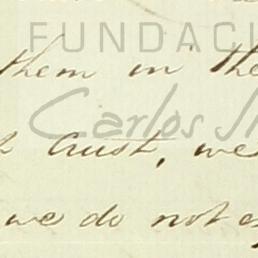 FUNDACI
them in the
Carlos
trust, we
we do not